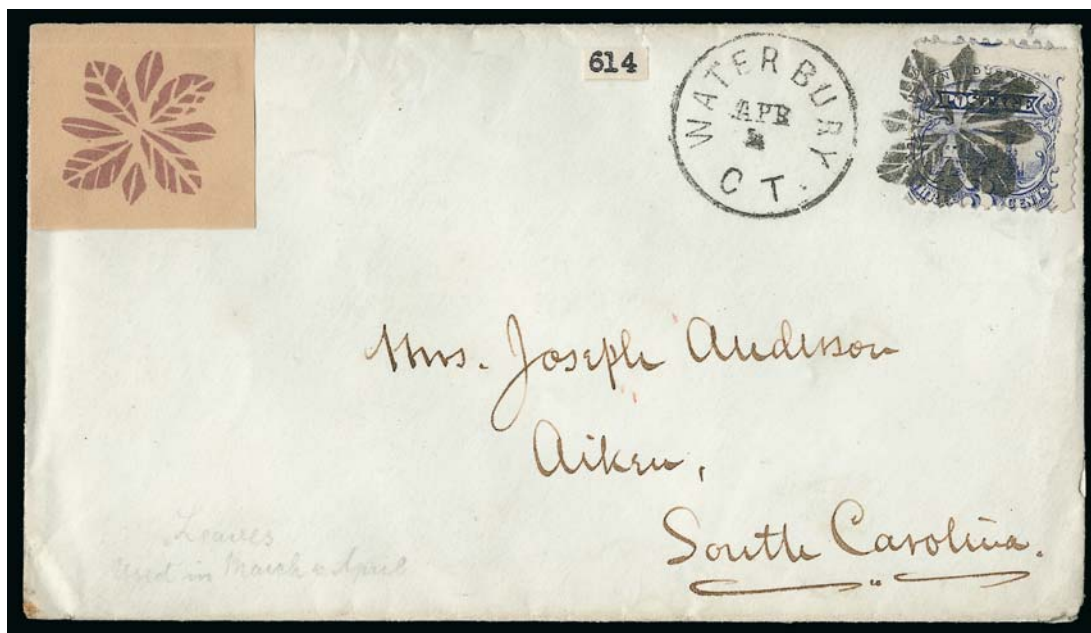 614
WATERBURY
APR
CT.
POSTAGE
CENTS
Mrs. Joseph Anderson
Aiken,
South Carolina.
Leaves
Used in March & April